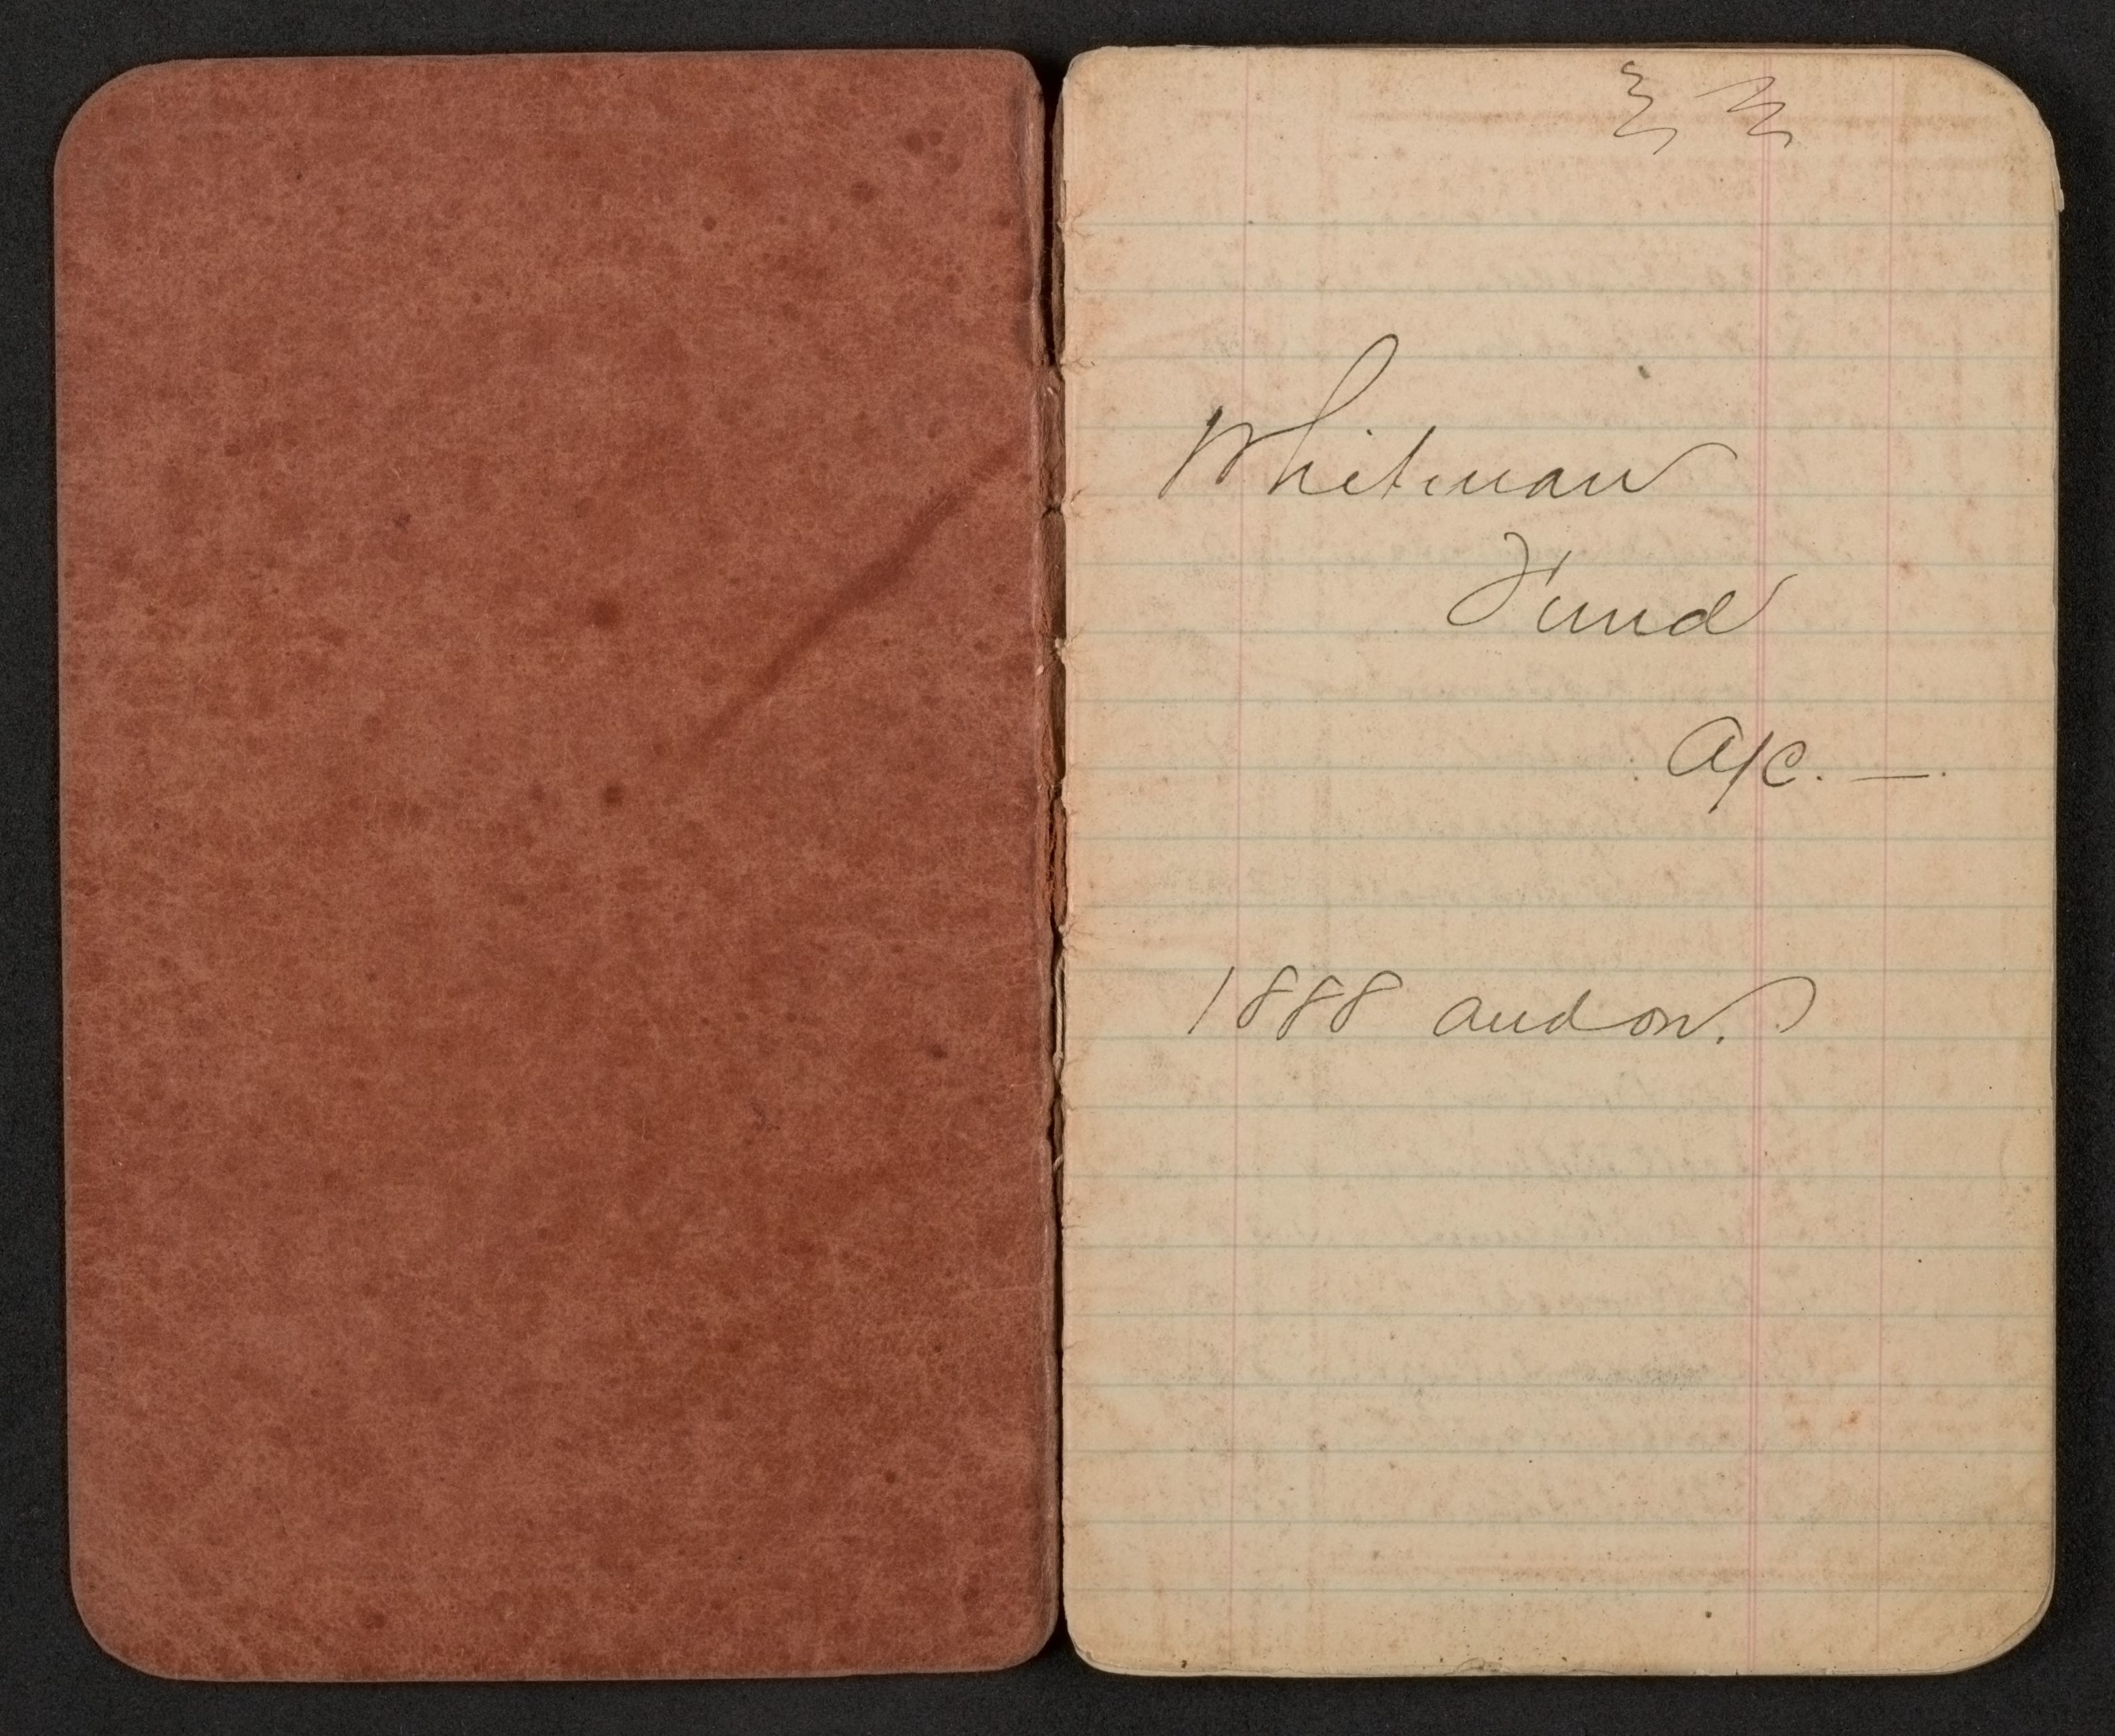 Whitman
Fund
a/c. —.
1888 and on.